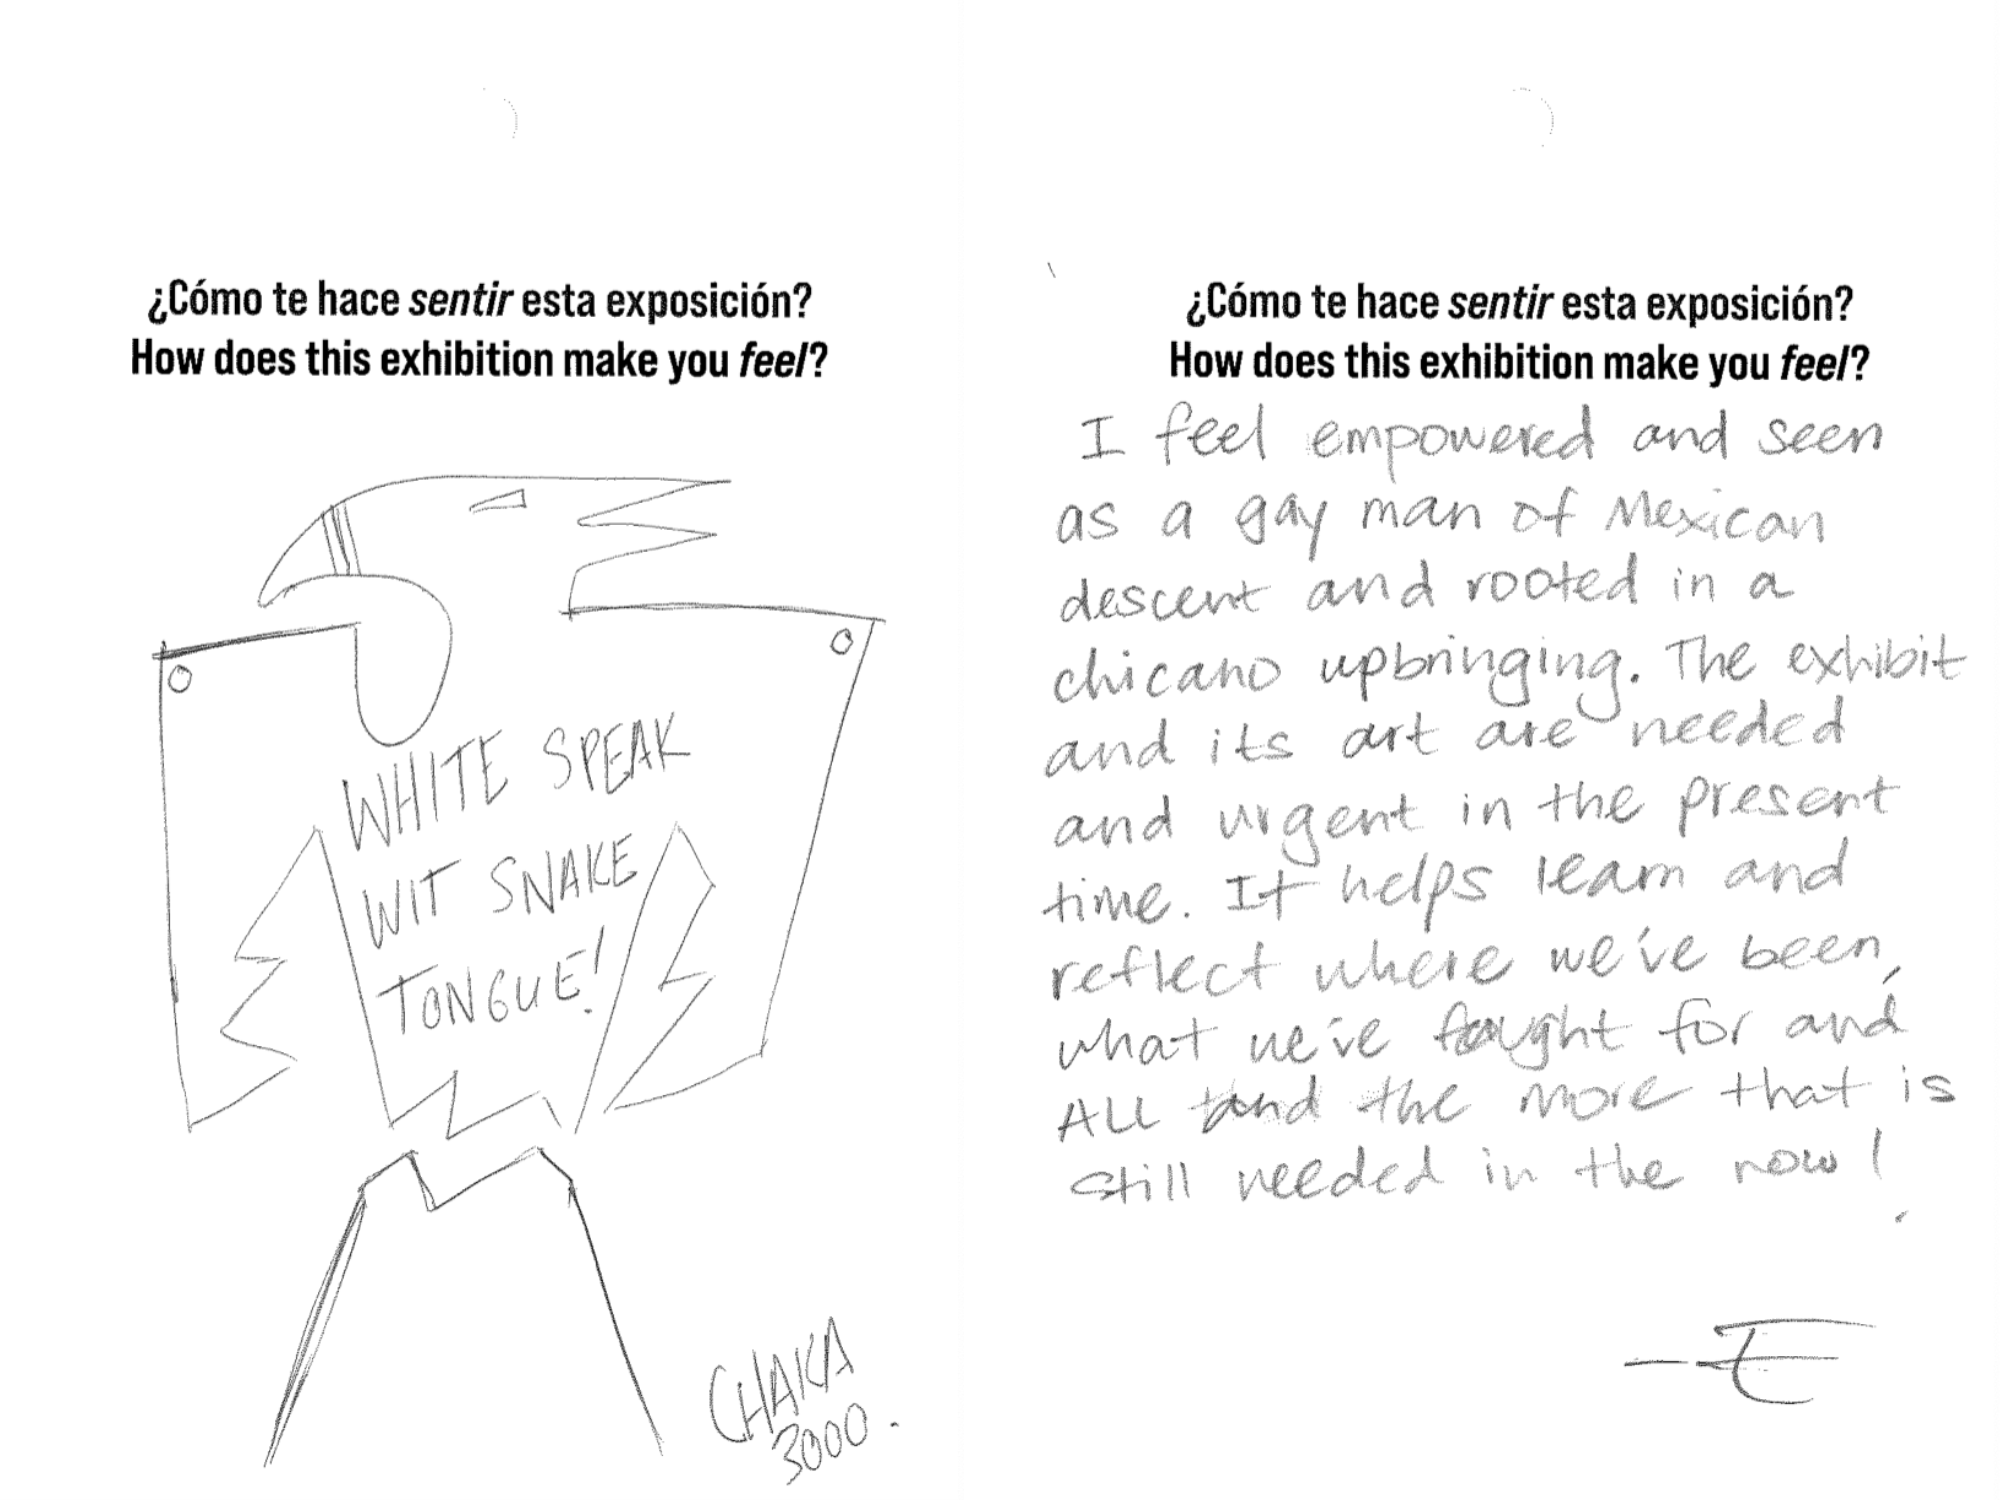 ¿Cómo te hace sentir esta exposición?
How does this exhibition make you feel?
WHITE SPEAK
WIT SNAKE
TONGUE!
CHAKA
3000.
¿Cómo te hace sentir esta exposición?
How does this exhibition make you feel?
I feel empowered and seen
as a gay man of Mexican
descent and rooted in a
chicano upbringing. The exhibit
and its art are needed
and urgent in the present
time. It helps learn and
reflect where we've been,
what we've fought for and
ALL and the more that is
still needed in the now!
—E